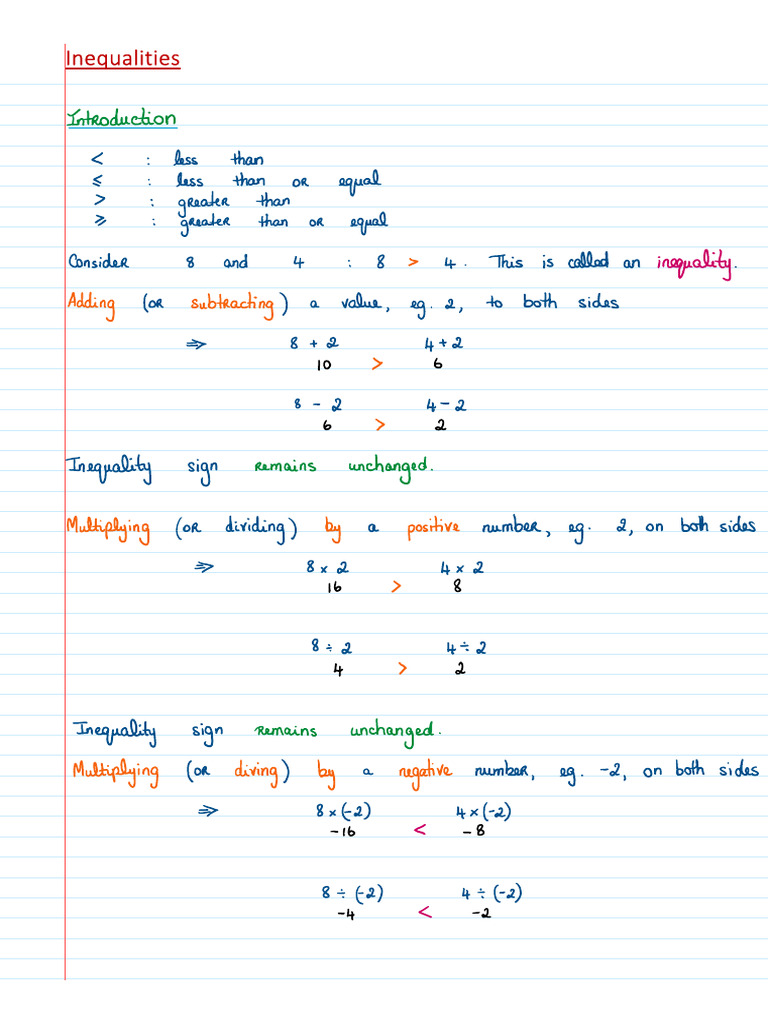 Inequalities
Introduction
< : less than
⩽ : less than or equal
> : greater than
⩾ : greater than or equal
Consider 8 and 4 : 8 > 4. This is called an inequality.
Adding (or subtracting) a value, eg. 2, to both sides
⇒ 8 + 2 4 + 2
10 > 6
8 - 2 4 - 2
6 > 2
Inequality sign remains unchanged.
Multiplying (or dividing) by a positive number, eg. 2, on both sides
⇒ 8 × 2 4 × 2
16 > 8
8 ÷ 2 4 ÷ 2
4 > 2
Inequality sign remains unchanged.
Multiplying (or diving) by a negative number, eg. -2, on both sides
⇒ 8 × (-2) 4 × (-2)
-16 < -8
8 ÷ (-2) 4 ÷ (-2)
-4 < -2